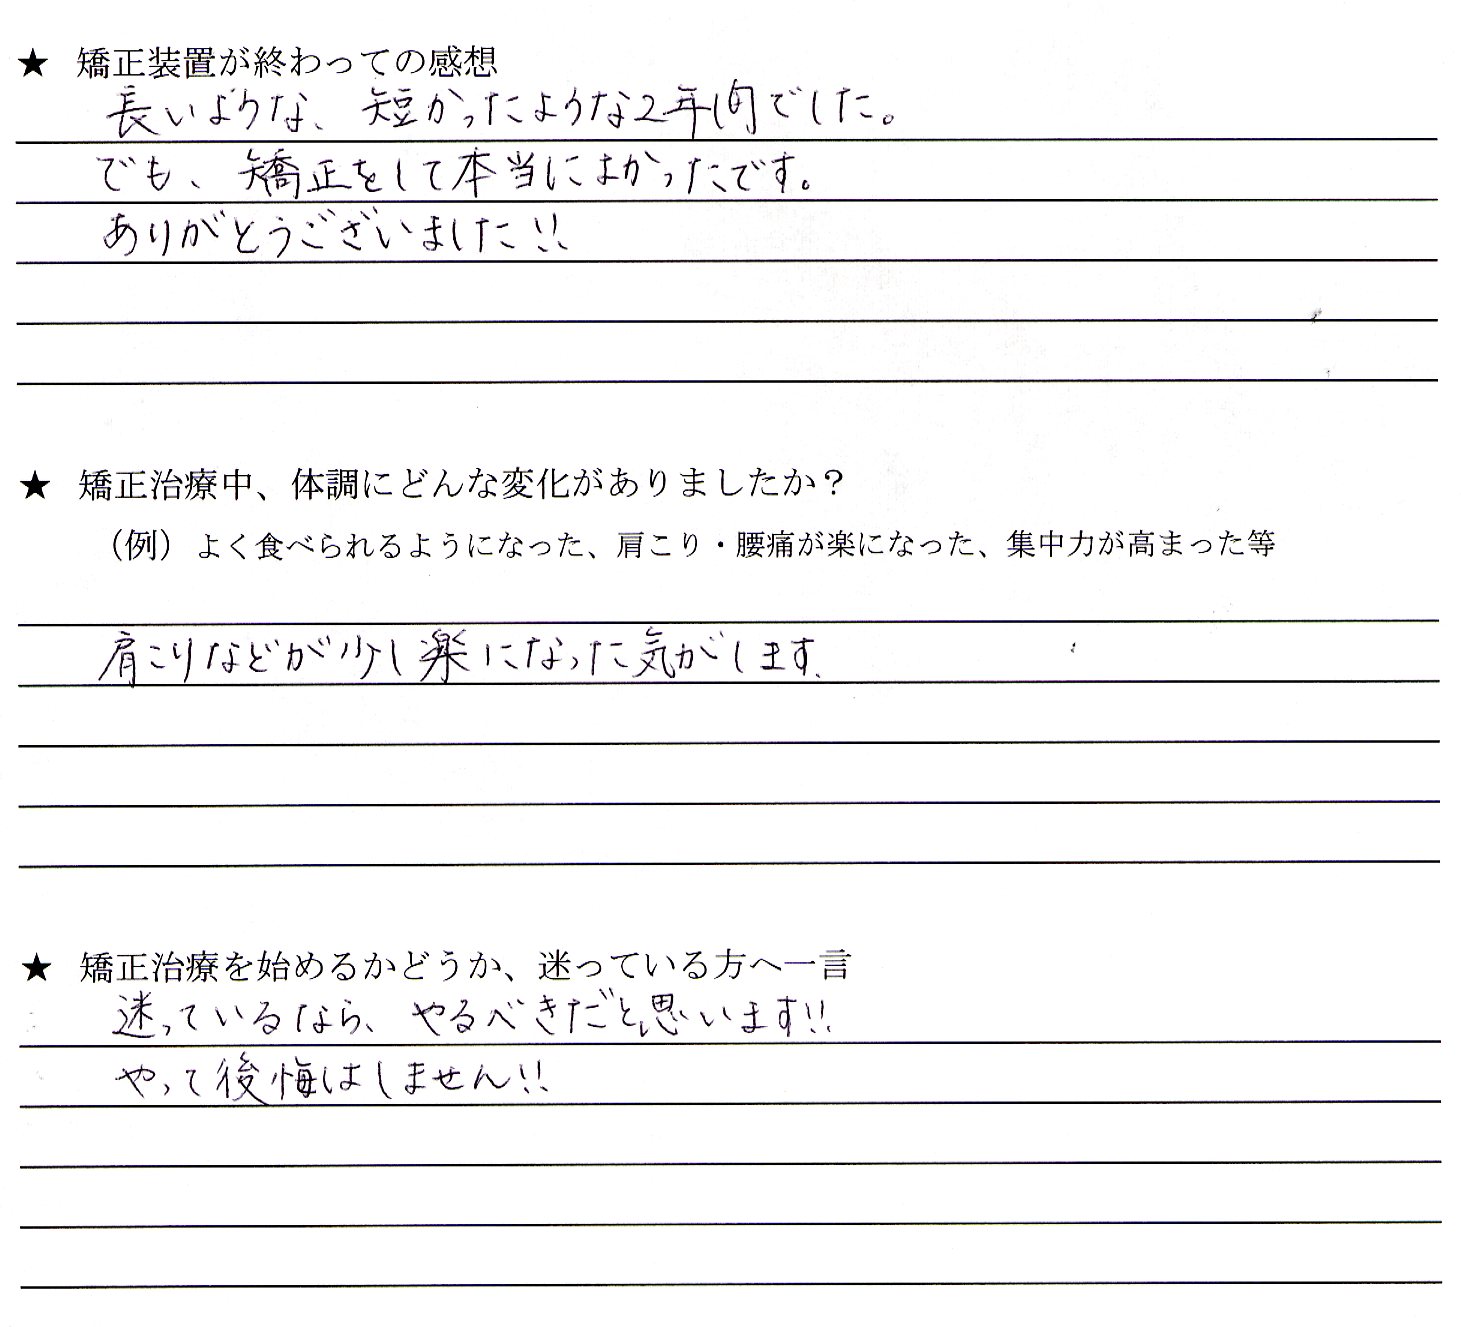 ★ 矯正装置が終わっての感想
長いような、短かったような2年間でした。
でも、矯正をして本当によかったです。
ありがとうございました!!
★ 矯正治療中、体調にどんな変化がありましたか？
（例）よく食べられるようになった、肩こり・腰痛が楽になった、集中力が高まった等
肩こりなどが少し楽になった気がします.
★ 矯正治療を始めるかどうか、迷っている方へ一言
迷っているなら、やるべきだと思います!!
やって後悔はしません!!